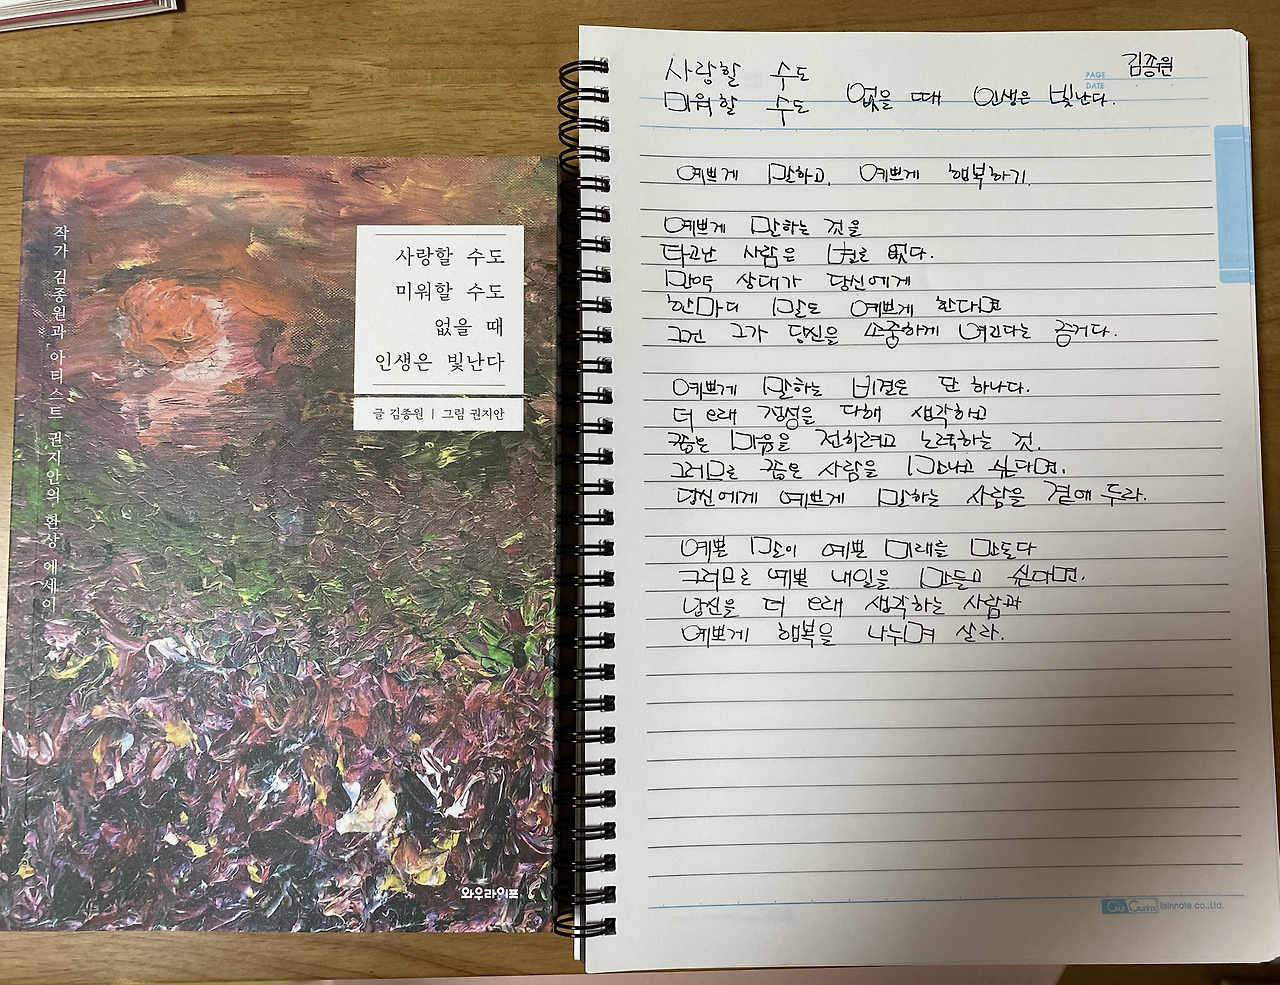 작가 김종원과 아티스트 권지안의 환상 에세이
사랑할 수도
미워할 수도
없을 때
인생은 빛난다
글 김종원 | 그림 권지안
와우라이프
김종원
PAGE
DATE
사랑할 수도
미워할 수도 없을 때 인생은 빛난다.
예쁘게 말하고, 예쁘게 행복하기.
예쁘게 말하는 것을
타고난 사람은 별로 없다.
만약 상대가 당신에게
한마디 말도 예쁘게 한다면
그건 그가 당신을 소중하게 여긴다는 증거다.
예쁘게 말하는 비결은 단 하나다.
더 오래 정성을 다해 생각하고
좋은 마음을 전하려고 노력하는 것.
그러므로 좋은 사람을 만나고 싶다면,
당신에게 예쁘게 말하는 사람을 곁에 두라.
예쁜 말이 예쁜 미래를 만든다
그러므로 예쁜 내일을 만들고 싶다면.
당신을 더 오래 생각하는 사람과
예쁘게 행복을 나누며 살라.
Ilsinnote co.,Ltd.